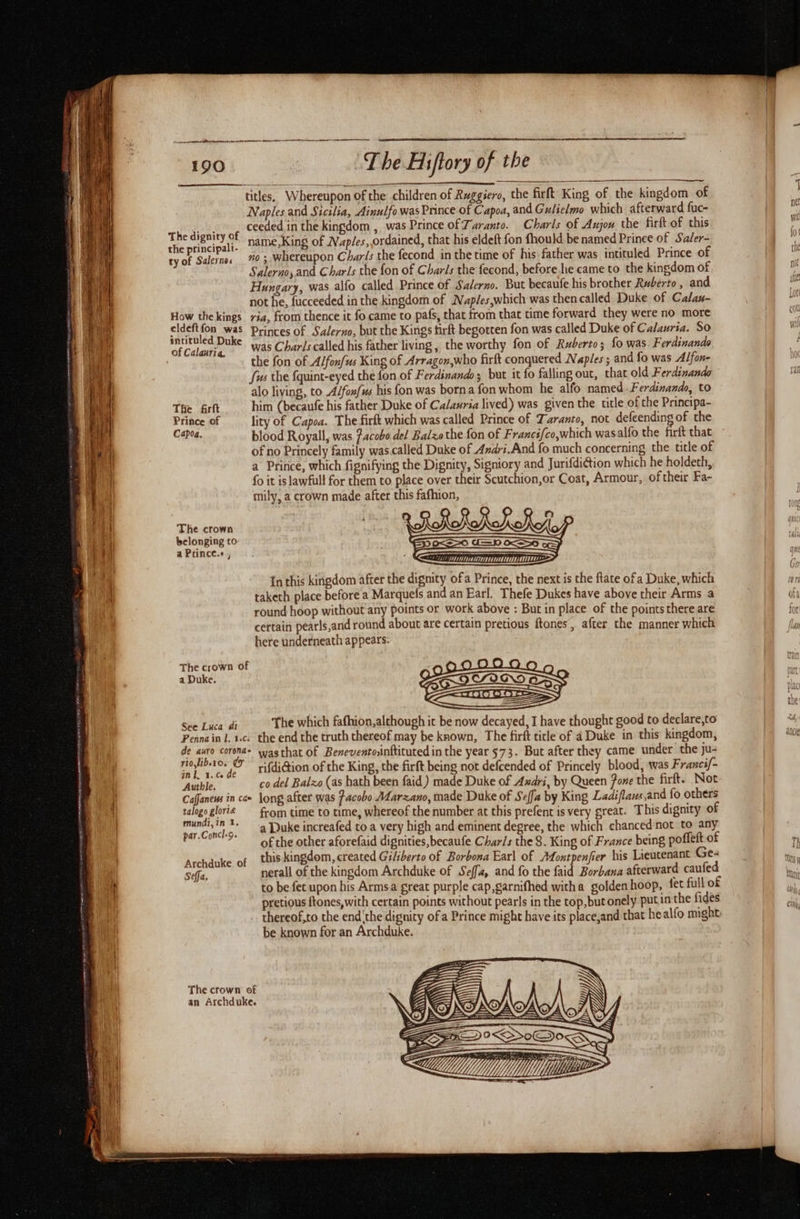 190
The Hiſtory of the
titles. Whereupon of the children of Ruggiero, the firſt King of the kingdom of
Naples and Sicilia, Ainulfo was Prince of Capoa, and Gulielmo which afterward ſuc-
ceeded in the kingdom, was Prince of Taranto. Charls of Anjou the firſt of this
The dignity of
the principali-
ty of Salerno.
name, King of Naples, ordained, that his eldeſt ſon ſhould be named Prince of Saler-
no; whereupon Charls the ſecond in the time of his father was intituled Prince of
Salerno, and Charls the ſon of Charls the ſecond, before he came to the kingdom of
Hungary, was alſo called Prince of Salerno. But becauſe his brother Ruberto, and
not he, ſucceeded in the kingdom of Naples, which was then called Duke of Calau-
How the kings
eldeſt ſon was
intituled Duke
of Calauria.
ria, from thence it ſo came to paſs, that from that time forward they were no more
Princes of Salerno, but the Kings firſt begotten ſon was called Duke of Calauria. So
was Charls called his father living, the worthy ſon of Ruberto; ſo was Ferdinando
the ſon of Alfonſus King of Arragon, who firſt conquered Naples; and ſo was Alfon-
ſus the ſquint-eyed the ſon of Ferdinando; but it ſo falling out, that old Ferdinando
alo living, to Alfonſus his ſon was born a ſon whom he alſo named Ferdinando, to
The firſt
Prince of
Capoa.
him (becauſe his father Duke of Calauria lived) was given the title of the Principa-
lity of Capoa. The firſt which was called Prince of Taranto, not deſcending of the
blood Royall, was Jacobo del Balzo the ſon of Franciſco, which was alſo the firſt that
of no Princely family was called Duke of Andri. And ſo much concerning the title of
a Prince, which ſignifying the Dignity, Signiory and Juriſdiction which he holdeth,
ſo it is lawfull for them to place over their Scutchion, or Coat, Armour, of their Fa-
mily, a crown made after this faſhion,
The crown
belonging to
a Prince.
In this kingdom after the dignity of a Prince, the next is the ſtate of a Duke, which
taketh place before a Marqueſs and an Earl. Theſe Dukes have above their Arms a
round hoop without any points or work above: But in place of the points there are
certain pearls, and round about are certain pretious ſtones, after the manner which
here underneath appears.
The crown of
a Duke.
See Luca di
Penna in l. 1.c.
de auro corona-
rio, lib. 10. &
in l. 1. c. de
Authle.
Caſſaneus in ca-
talogo gloriæ
mundi, in 1.
par. Concl. 9.
The which faſhion, although it be now decayed, I have thought good to declare, to
the end the truth thereof may be known, The firſt title of a Duke in this kingdom,
was that of Benevento, inſtituted in the year 573. But after they came under the ju-
riſdiction of the King, the firſt being not deſcended of Princely blood, was Franciſ-
co del Balzo (as hath been ſaid) made Duke of Andri, by Queen Jone the firſt. Not
long after was Jacobo Marzano, made Duke of Seſſa by King Ladiſlaus, and ſo others
from time to time, whereof the number at this preſent is very great. This dignity of
a Duke increaſed to a very high and eminent degree, the which chanced not to any
of the other aforeſaid dignities, becauſe Charls the 8. King of France being poſſeſt of
Archduke of
Seſſa.
this kingdom, created Giliberto of Borbona Earl of Montpenſier his Lieutenant Ge-
nerall of the kingdom Archduke of Seſſa, and ſo the ſaid Borbana afterward cauſed
to be ſet upon his Arms a great purple cap, garniſhed with a golden hoop, ſet full of
pretious ſtones, with certain points without pearls in the top, but onely put in the ſides
thereof, to the end the dignity of a Prince might have its place, and that he alſo might
be known for an Archduke.
The crown of
an Archduke.